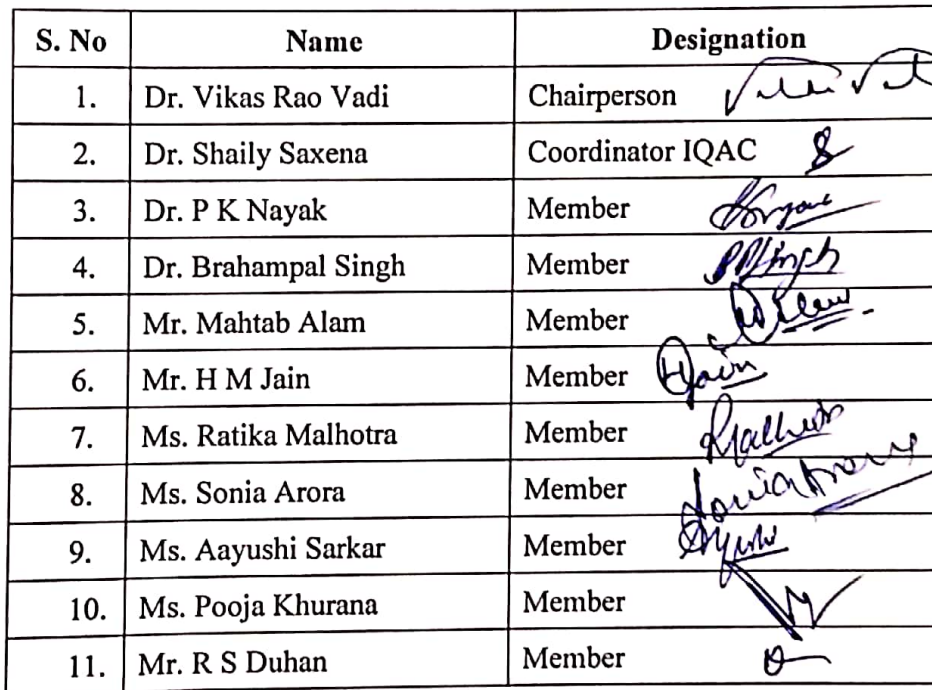 S. No Name Designation
1. Dr. Vikas Rao Vadi Chairperson
2. Dr. Shaily Saxena Coordinator IQAC
3. Dr. P K Nayak Member
4. Dr. Brahampal Singh Member
5. Mr. Mahtab Alam Member
6. Mr. H M Jain Member Jain
7. Ms. Ratika Malhotra Member
8. Ms. Sonia Arora Member Sonia Arora
9. Ms. Aayushi Sarkar Member
10. Ms. Pooja Khurana Member
11. Mr. R S Duhan Member